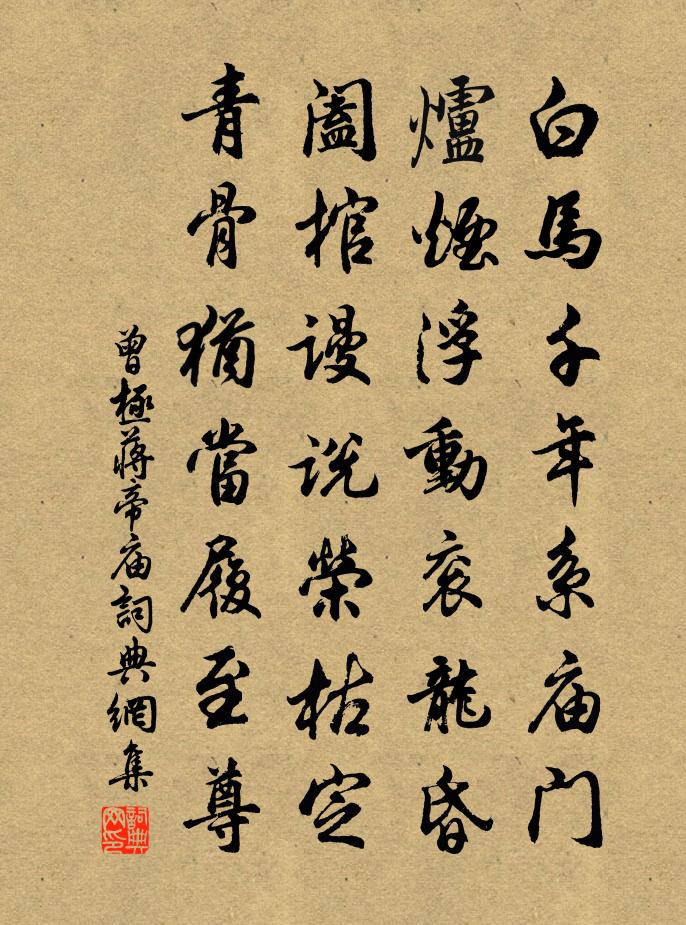 白馬千年系庙门
爐煙浮動衮龍昏
闔棺謾说榮枯定
青骨猶當履至尊
曾極蔣帝庙詞典網集
詞典网印